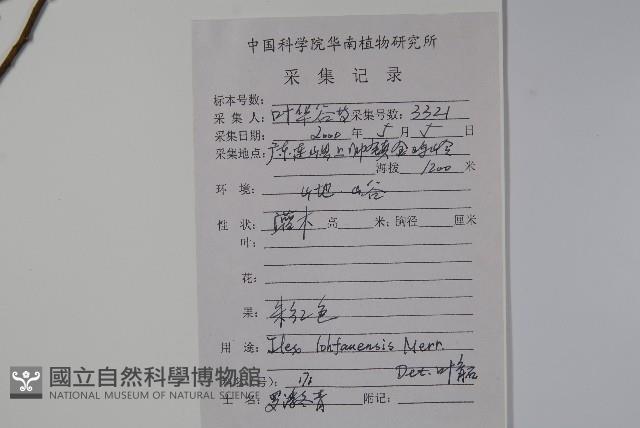 中国科学院华南植物研究所
采 集 记 录
标本号数:
采 集 人: 叶华谷等 采集号数: 3321
采集日期: 2000 年 5 月 5 日
采集地点: 广东连山县上帅镇
海拔 1200 米
环 境: 山地 山谷
性 状: 灌木 高 米; 胸径 厘米
叶:
花:
果: 朱红色
用 途: Ilex lohfauensis Merr.
Det. 叶
土 名: 罗浮冬青 附记:
國立自然科學博物館
NATIONAL MUSEUM OF NATURAL SCIENCE